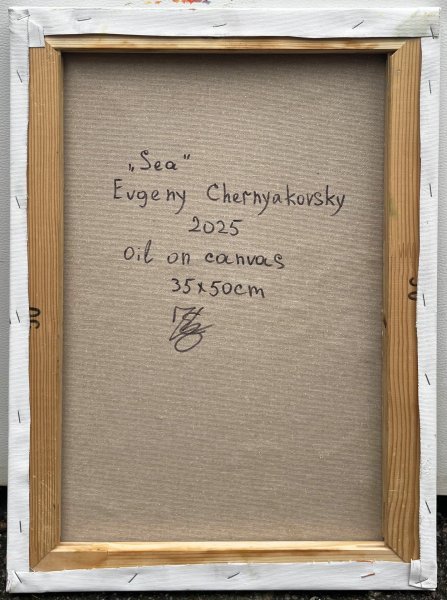 „Sea"
Evgeny Chernyakovsky
2025
oil on canvas
35x50cm